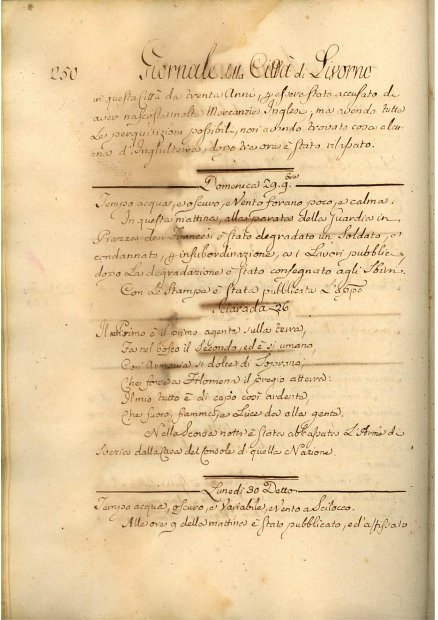 250 Giornale della Città di Livorno
in questa Città da trenta Anni, p essere stato accusato di
aver nascoste molte Mercanzie Inglese, ma avendo fatte
Le perquisizioni possibili, non avendo trovato cosa alcu
na d'Inghilterra, dopo tre ore è stato rilasciato.
Domenica 29. 9bre
Tempo acqua, e oscuro, e Vento forano poco, e calma.
In questa mattina, alla parata della Guardia in
Piazza dei Francesi è stato degradato un Soldato, e
condannato, p insubordinazione, a i Lavori pubblici
dopo La degradazione è stato consegnato agli Sbirri.
Con Le Stampe è stata pubblicata L'appo
Sciarada 26
Il Primo è il primo agente sulla terra,
Fa nel bosco il Secondo, ed è si umano,
Con si dolce di Soprano,
Che forse a Filomena il pregio atterra:
Il mio tutto è di capo così ardente,
Che fuoco, fiamme, e Luce da alla gente.
Nella Scorsa notte è stata abbassata L'Arme di
Svezia dalla Casa del Console di quella Nazione.
Lunedì 30 Detto
Tempo acqua, oscuro, e variabile, e Vento a Scilocco.
Alle ore 9 della mattina è stato pubblicato, ed affissato